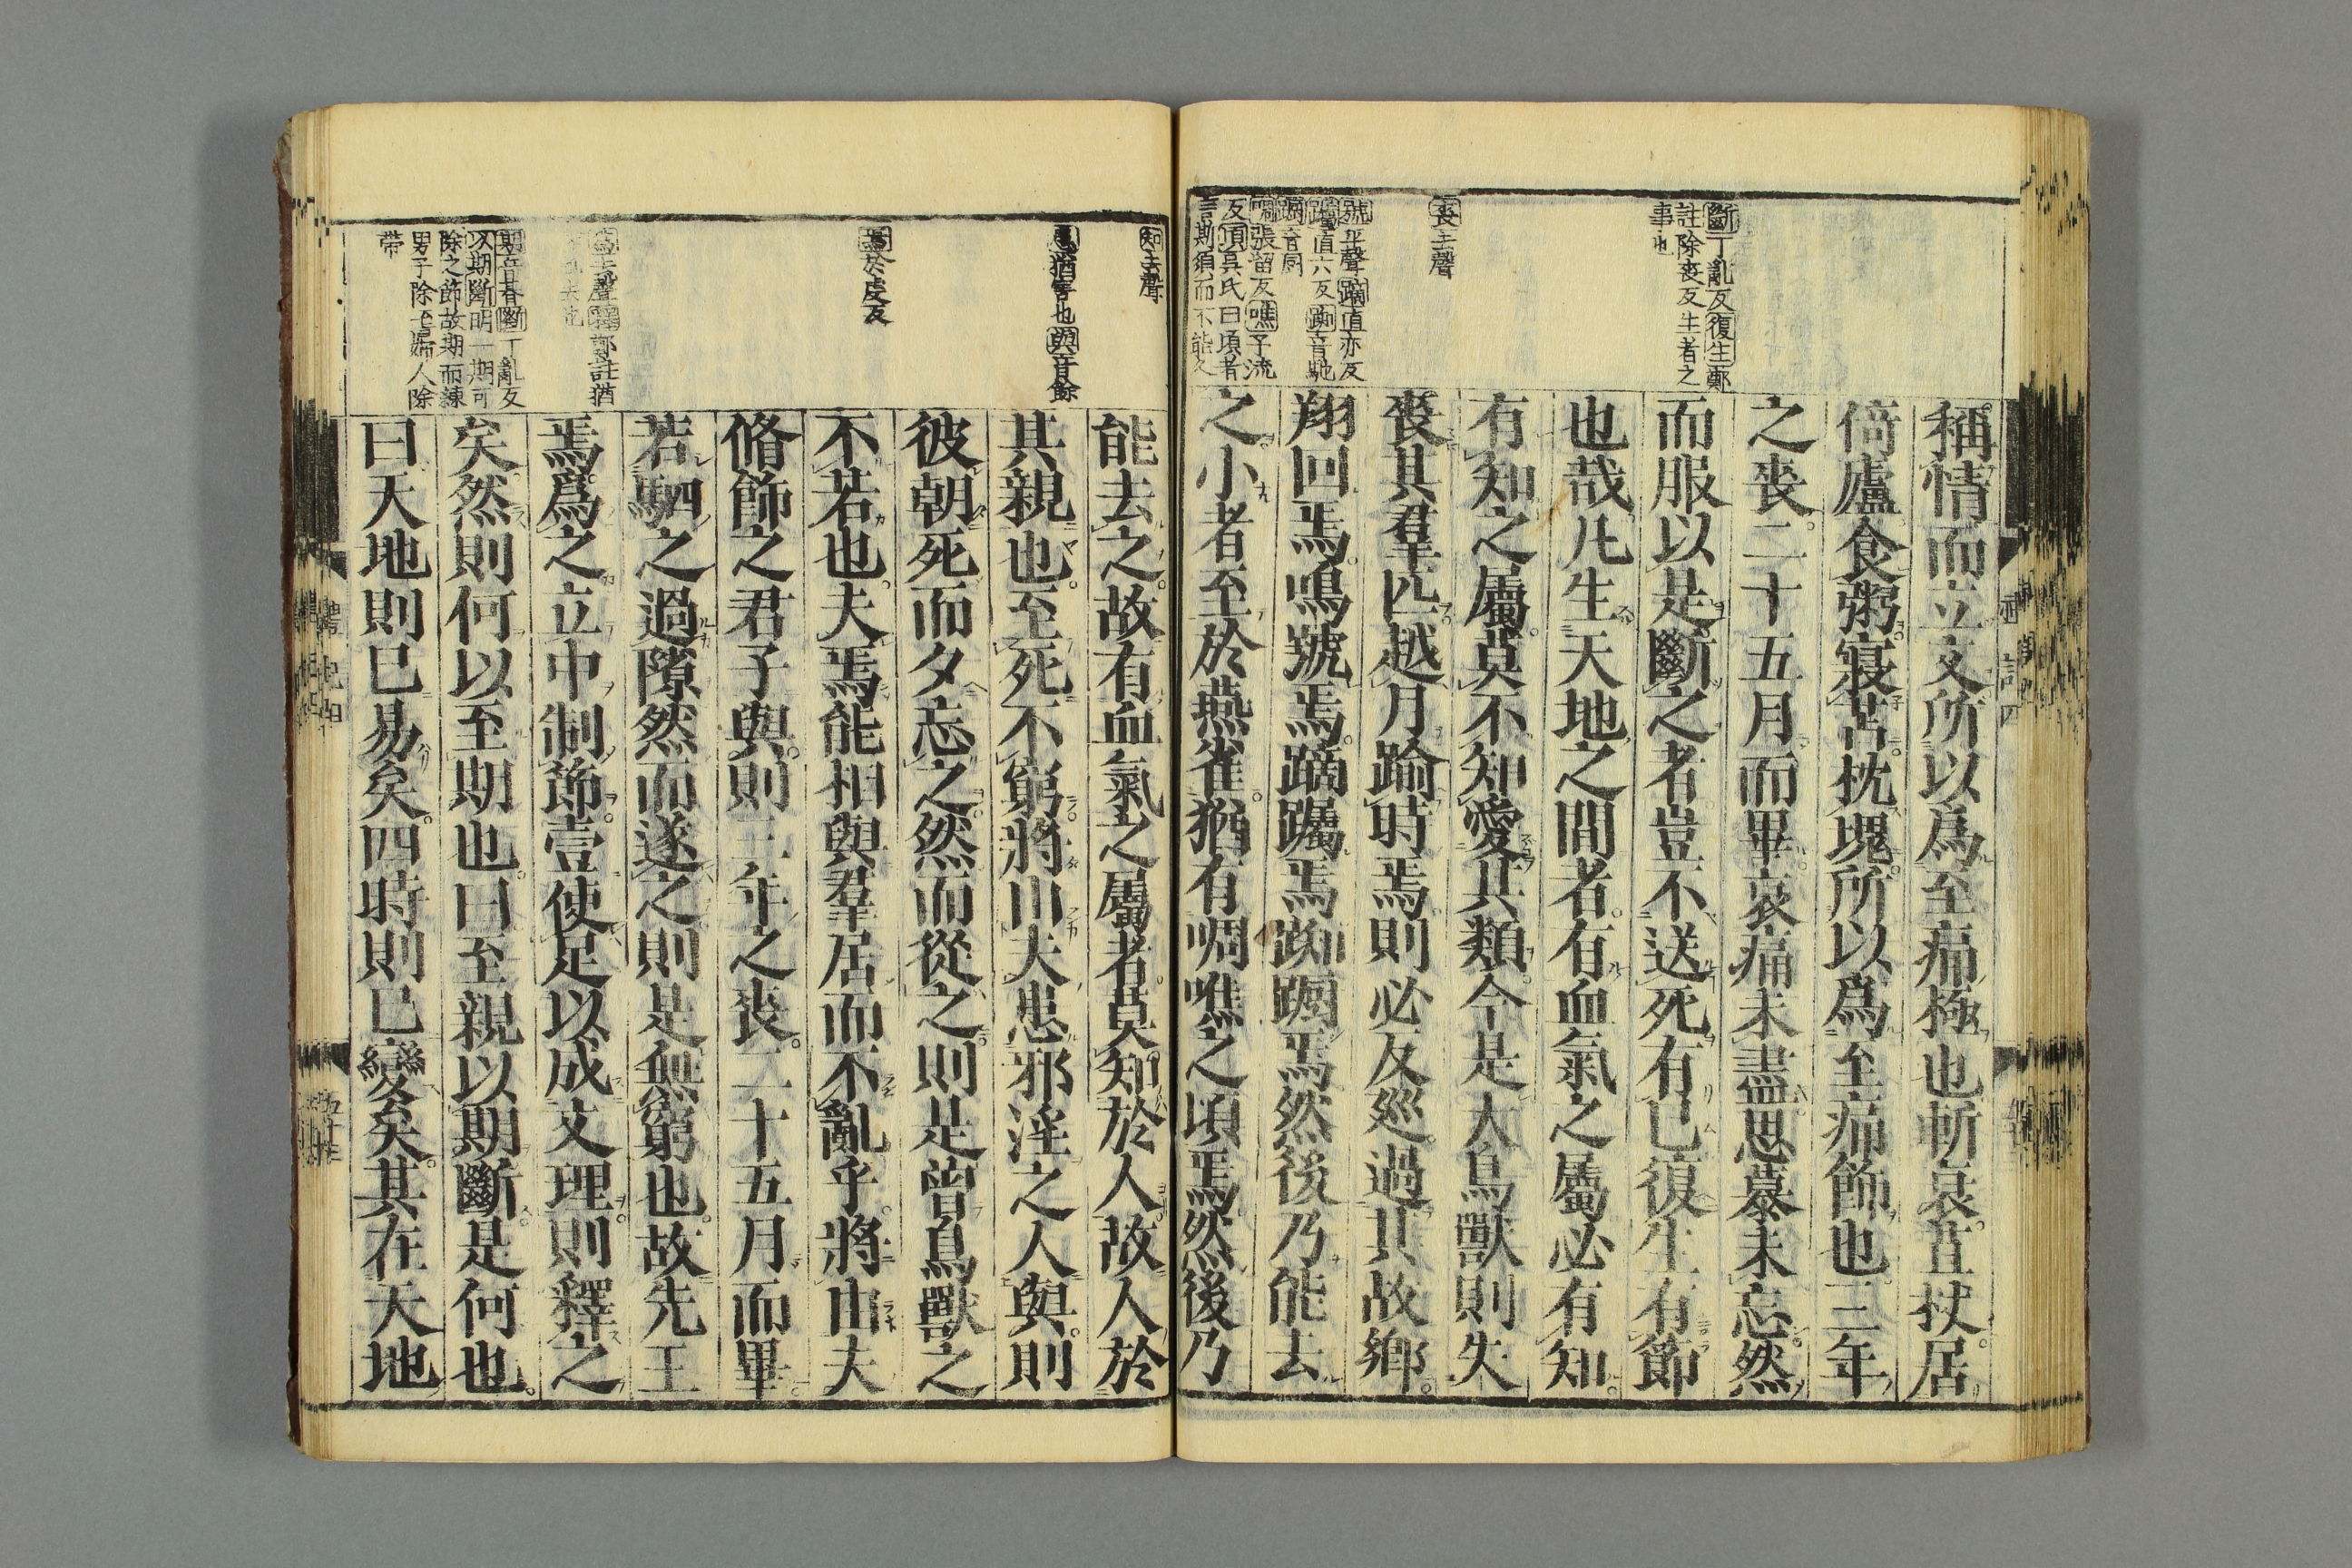 斷丁亂反復生鄭
註除喪反生者之
事也
喪去聲
號平聲蹢直亦反
躅直六反踟音馳
蹰音厨
啁張留反噍子流
反頃吳氏曰頃者
言斯須而不能久
稱情而立文所以爲至痛極也斬衰苴杖居
倚廬食粥寢苫枕塊所以爲至痛飾也三年
之喪二十五月而畢哀痛未盡思慕未忘然
而服以是斷之者豈不送死有已復生有節
也哉凡生天地之間者有血氣之屬必有知
有知之屬莫不知愛其類今是大鳥獸則失
喪其羣匹越月踰時焉則必反巡過其故鄉
翔回焉鳴號焉蹢躅焉踟蹰焉然後乃能去
之小者至於燕雀猶有啁噍之頃焉然後乃
知去聲
患猶害也與音餘
焉於虔反
爲去聲釋鄭註猶
去也
期音朞斷丁亂反
以期斷明一期可
除之節故期而練
男子除首婦人除
帶
能去之故有血氣之屬者莫知於人故人於
其親也至死不窮將由夫患邪淫之人與則
彼朝死而夕忘之然而從之則是曾鳥獸之
不若也夫焉能相與羣居而不亂乎將由夫
脩飾之君子與則三年之喪二十五月而畢
若駟之過隙然而遂之則是無窮也故先王
焉爲之立中制節壹使足以成文理則釋之
矣然則何以至期也曰至親以期斷是何也
曰天地則已易矣四時則已變矣其在天地